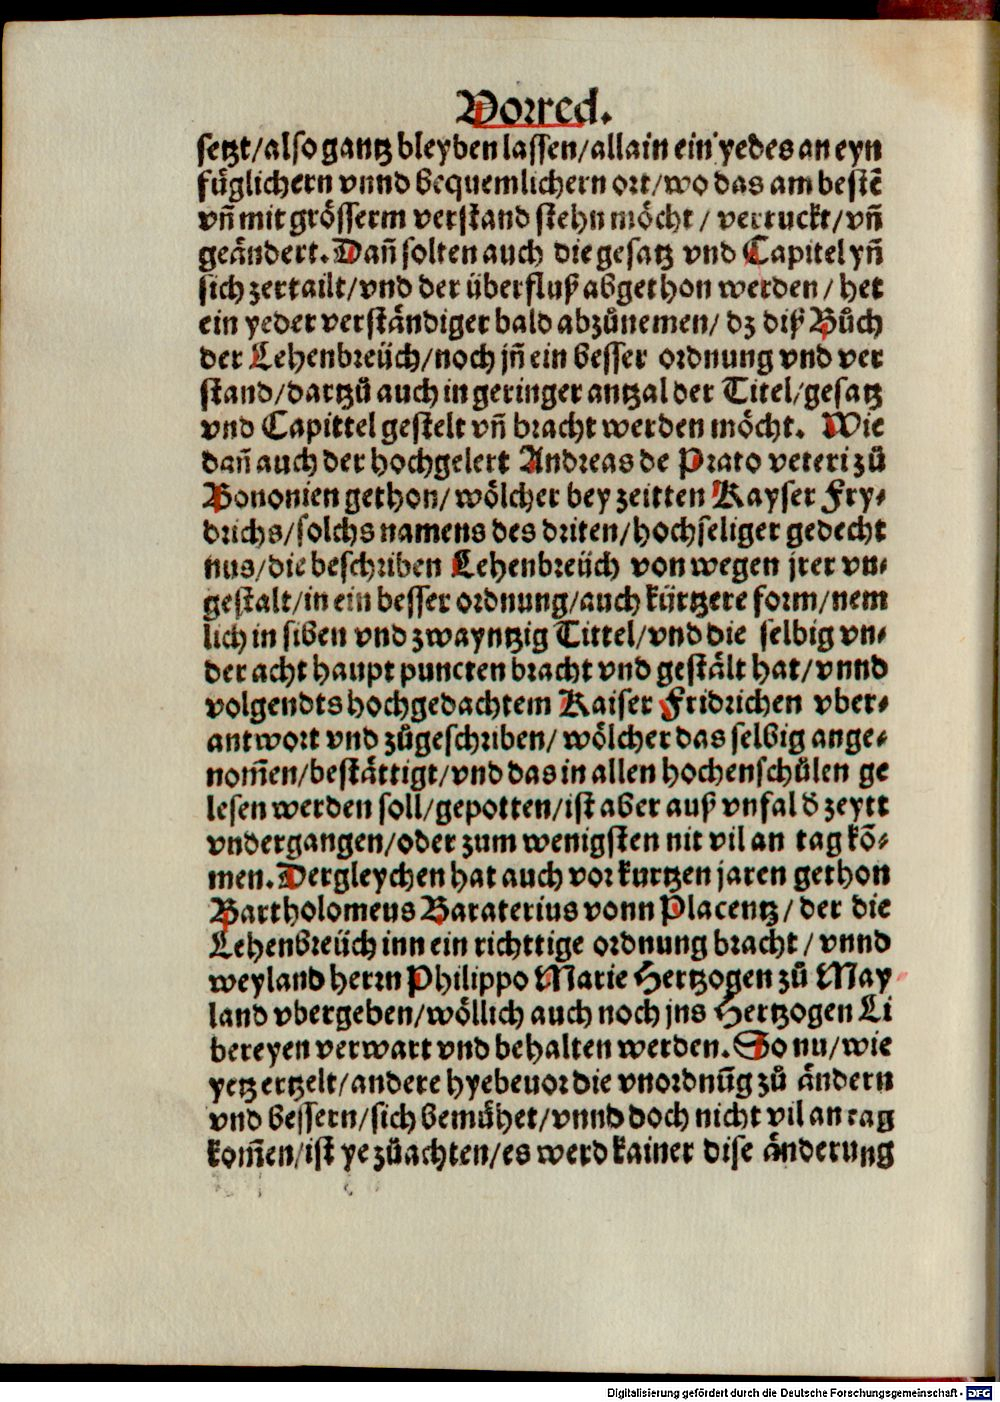 Vorred.
setzt/also gantz bleyben lassen/allain ein yedes an eyn
füglichern vnnd bequemlichern ort/wo das am bestē
vñ mit grösserm verstand stehn möcht/ verruckt/vñ
geändert. Dañ solten auch die gesatz vnd Capitel yñ
sich zertailt/vnd der überfluß abgethon werden/ het
ein yeder verständiger bald abzůnemen/ dz diß Bůch
der Lehenbreüch/noch jñ ein besser ordnung vnd ver
stand/dartzů auch in geringer antzal der Titel/gesatz
vnd Capittel gestelt vñ bracht werden möcht. Wie
dañ auch der hochgelert Andreas de Prato veteri zů
Bononien gethon/ wölcher bey zeitten Kayser Fry-
drichs/solchs namens des driten/hochseliger gedecht
nus/die beschriben Lehenbreüch von wegen jrer vn-
gestalt/in ein besser ordnung/auch kürtzere form/nem
lich in siben vnd zwayntzig Tittel/vnd die selbig vn-
der acht haupt puncten bracht vnd gestält hat/vnnd
volgendts hochgedachtem Kaiser Fridrichen vber-
antwort vnd zůgeschriben/ wölcher das selbig ange-
nom̄en/bestättigt/vnd das in allen hochenschůlen ge
lesen werden soll/gepotten/ist aber auß vnfal d̕ zeytt
vndergangen/oder zum wenigsten nit vil an tag kō-
men. Dergleychen hat auch vor kurtzen jaren gethon
Bartholomeus Baraterius vonn Placentz/ der die
Lehenbreüch inn ein richttige ordnung bracht/ vnnd
weyland herrn Philippo Marie Hertzogen zů May
land vbergeben/wöllich auch noch jns Hertzogen Li
bereyen verwart vnd behalten werden. So nu/wie
yetz ertzelt/andere hyebeuor die vnordnūg zů ändern
vnd bessern/sich bemühet/vnnd doch nicht vil an tag
kom̄en/ist ye zůachten/es werd kainer dise änderung
Digitalisierung gefördert durch die Deutsche Forschungsgemeinschaft - DFG